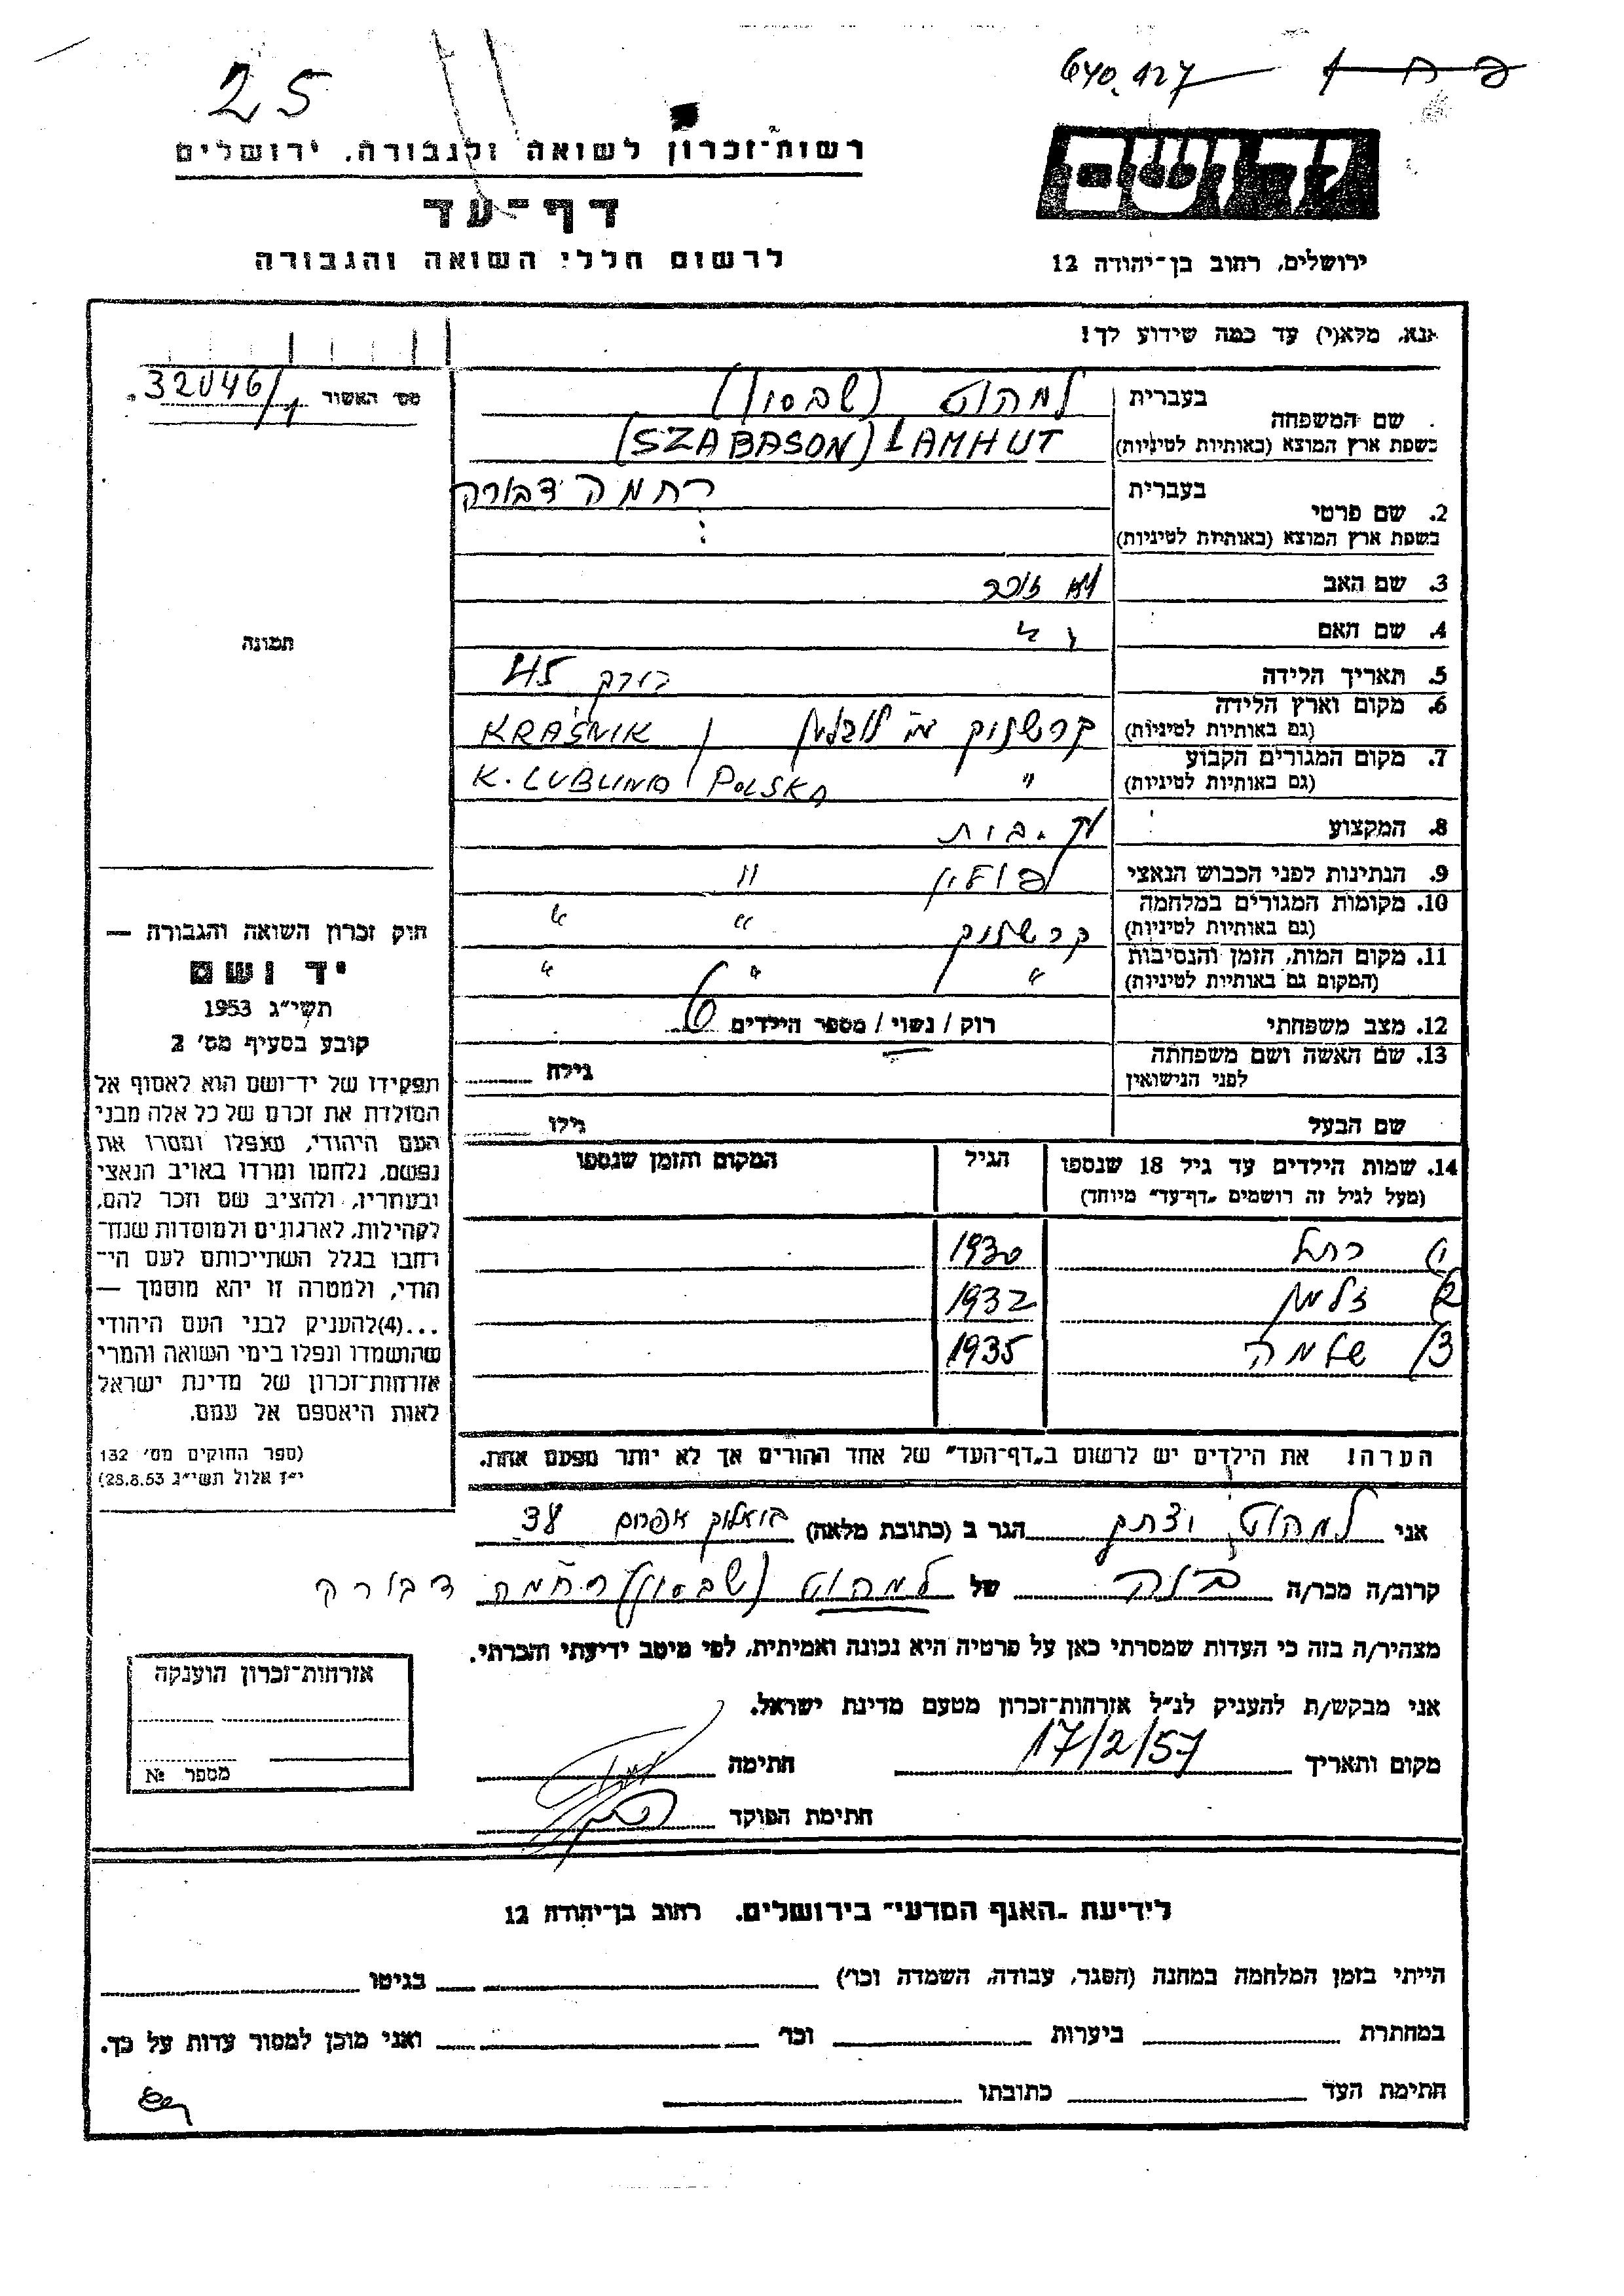 25
640.127
רשות־זכרון לשואה ולגבורה, ירושלים
דף־עד
לרשום חללי השואה והגבורה
יד ושם
ירושלים, רחוב בן־יהודה 12
אנא, מלא(י) עד כמה שידוע לך!
מס׳ האשור 32046/1
בעברית למהוט (שבסון)
שם המשפחה
בשפת ארץ המוצא (באותיות לטיניות) (SZABASON) LAMHUT
בעברית רחמה דבורה
2. שם פרטי
בשפת ארץ המוצא (באותיות לטיניות)
3. שם האב לא זוכר
4. שם האם
תמונה
5. תאריך הלידה 45
6. מקום וארץ הלידה
(גם באותיות לטיניות) קרשניק KRAŚNIK
7. מקום המגורים הקבוע
(גם באותיות לטיניות) " K. LUBLINA POLSKA
8. המקצוע ע.בית
9. הנתינות לפני הכבוש הנאצי פולין "
10. מקומות המגורים במלחמה
(גם באותיות לטיניות) קרשניק " "
11. מקום המות, הזמן והנסיבות
(המקום גם באותיות לטיניות) " " "
12. מצב משפחתי רוק / נשוי / מספר הילדים 6
13. שם האשה ושם משפחתה
לפני הנישואין גילה
שם הבעל גילו
14. שמות הילדים עד גיל 18 שנספו הגיל המקום והזמן שנספו
(מעל לגיל זה רושמים „דף־עד״ מיוחד)
1) רחל 1930
2) זלמן 1932
3) שלמה 1935
הערה! את הילדים יש לרשום ב„דף־העד״ של אחד ההורים אך לא יותר מפעם אחת.
חוק זכרון השואה והגבורה —
יד ושם
תשי״ג 1953
קובע בסעיף מס׳ 2
תפקידו של יד־ושם הוא לאסוף אל
המולדת את זכרם של כל אלה מבני
העם היהודי, שנפלו ומסרו את
נפשם, נלחמו ומרדו באויב הנאצי
ובעוזריו, ולהציב שם וזכר להם,
לקהילות, לארגונים ולמוסדות שנח־
רבו בגלל השתייכותם לעם הי־
הודי, ולמטרה זו יהא מוסמך —
...(4)להעניק לבני העם היהודי
שהושמדו ונפלו בימי השואה והמרי
אזרחות־זכרון של מדינת ישראל
לאות היאספם אל עמם.
(ספר החוקים מס׳ 132
י״ז אלול תשי״ג 28.8.53)
אני למהוט יצחק הגר ב (כתובת מלאה) אפרים 38
קרוב/ה מכר/ה של למהוט (שבסון) רחמה דבורה
מצהיר/ה בזה כי העדות שמסרתי כאן על פרטיה היא נכונה ואמיתית, לפי מיטב ידיעתי והכרתי.
אני מבקש/ת להעניק לנ״ל אזרחות־זכרון מטעם מדינת ישראל.
מקום ותאריך 17/2/57 חתימה
חתימת הפוקד
אזרחות־זכרון הוענקה
מספר №
לידיעת „האגף המדעי״ בירושלים. רחוב בן־יהודה 12
הייתי בזמן המלחמה במחנה (הסגר, עבודה, השמדה וכו׳) בגיטו
במחתרת ביערות וכו׳ ואני מוכן למסור עדות על כך.
חתימת העד כתובתו